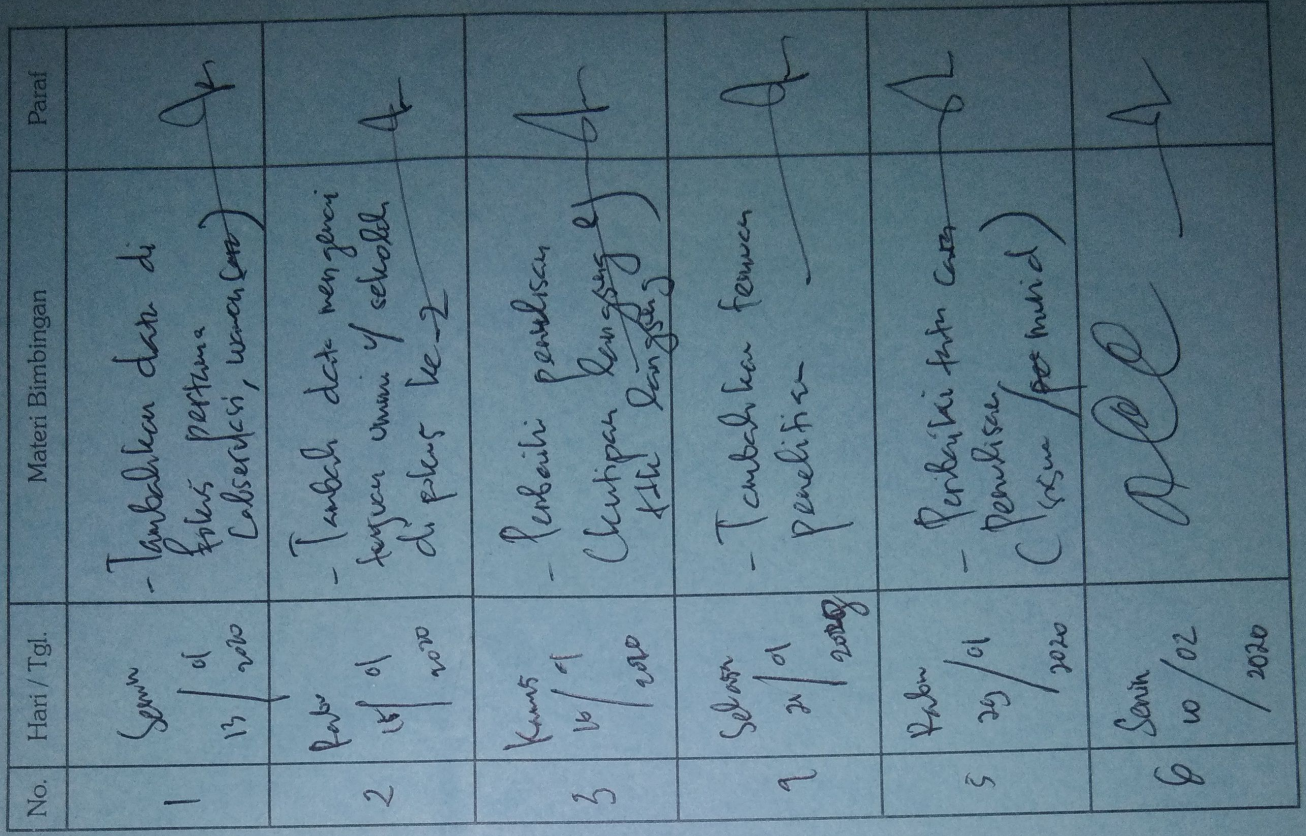 No. Hari / Tgl. Materi Bimbingan Paraf
1 Senin 13/01 2020
- Tambahkan data di
fokus pertama
(observasi, wawancara)
2 Rabu 15/01 2020
- Tambah data mengenai
tujuan umum y/ sekolah
di fokus ke-2
3 Kamis 16/01 2020
- Perbaiki penulisan
(kutipan langsung &
tdk langsung)
4 Selasa 21/01 2020
- Tambahkan temuan
penelitian
5 Rabu 29/01 2020
- Perbaiki tata cara
penulisan
(siswa / murid)
6 Senin 10/02 2020
acc